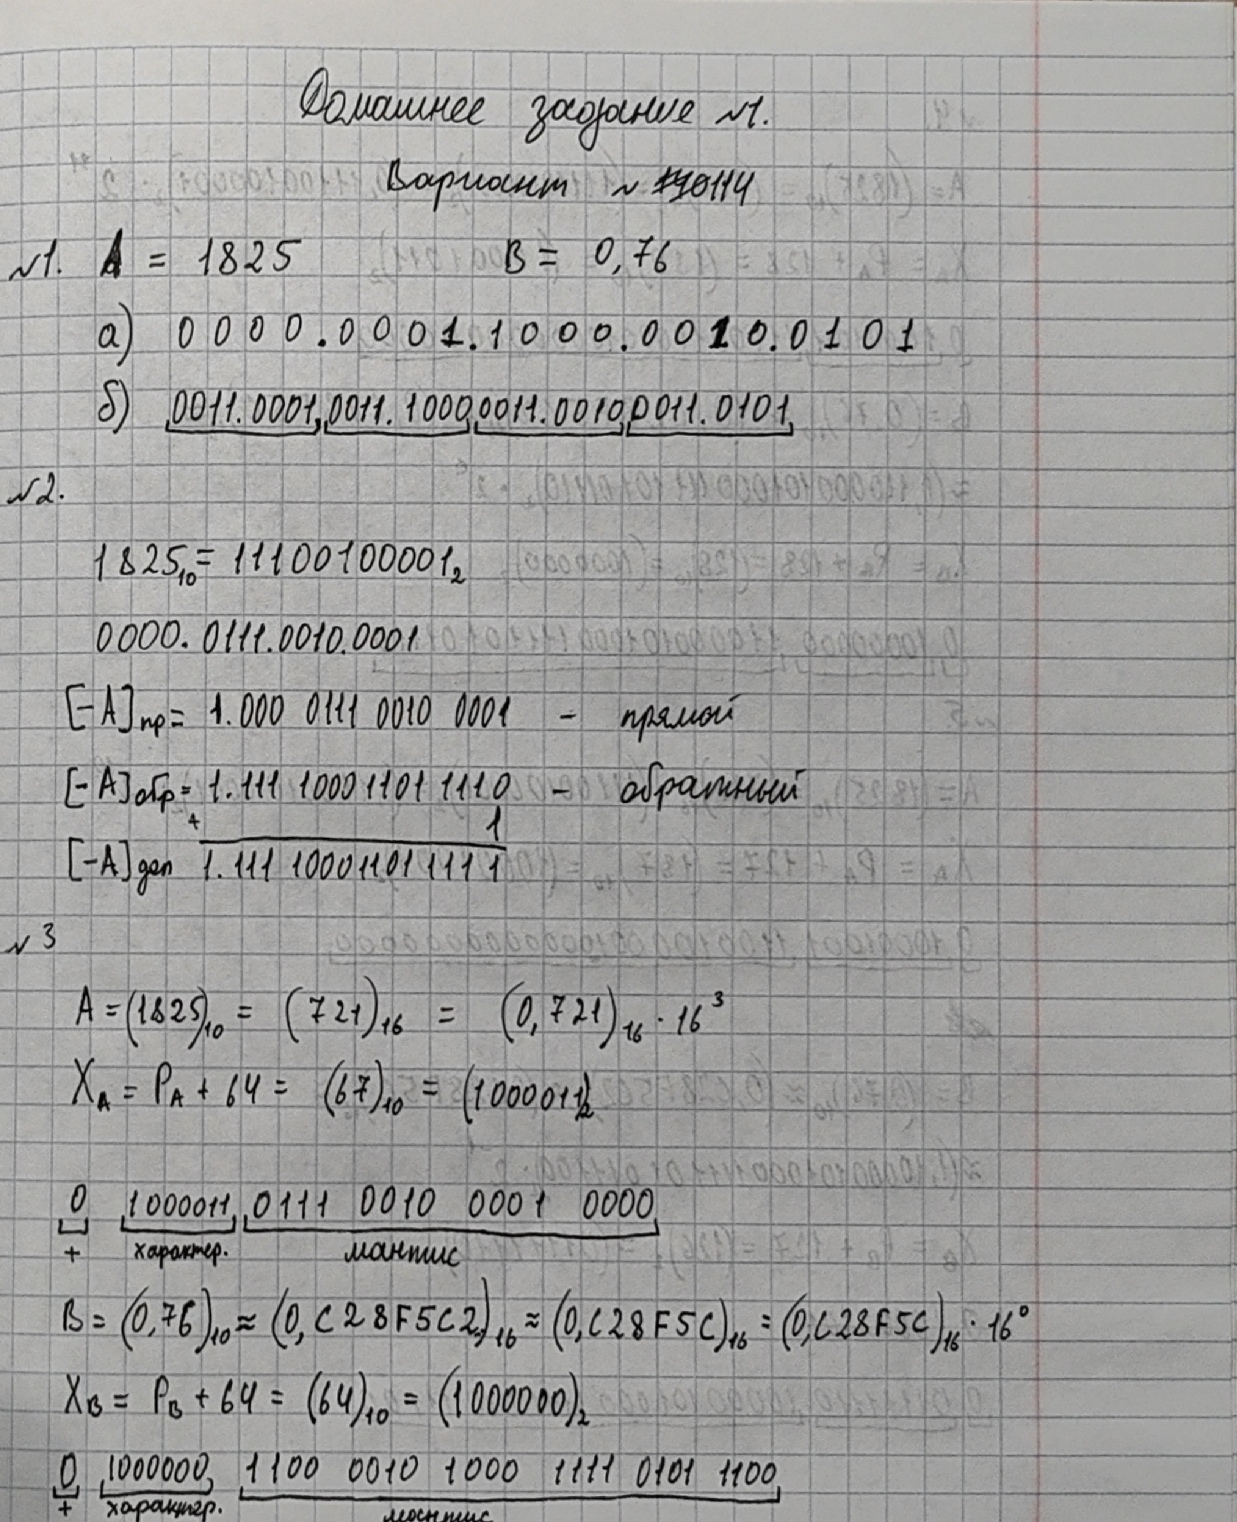 Домашнее задание №1.
Вариант № 114
№1. A = 1825 B = 0,76
а) 0000.0001.1000.0010.0101
б) 0011.0001 0011.1000 0011.0010 0011.0101
№2.
1825₁₀ = 11100100001₂
0000.0111.0010.0001
[-A]пр = 1.000 0111 0010 0001 - прямой
[-A]обр = 1.111 1000 1101 1110 - обратный
+ 1
[-A]доп 1.111 1000 1101 1111
№3
A = (1825)₁₀ = (721)₁₆ = (0,721)₁₆ · 16³
X_A = P_A + 64 = (67)₁₀ = (1000011)₂
0 1000011 0111 0010 0001 0000
+ характер. мантис
B = (0,76)₁₀ ≈ (0,C28F5C2)₁₆ ≈ (0,C28F5C)₁₆ = (0,C28F5C)₁₆ · 16⁰
X_B = P_B + 64 = (64)₁₀ = (1000000)₂
0 1000000 1100 0010 1000 1111 0101 1100
+ характер. мантис